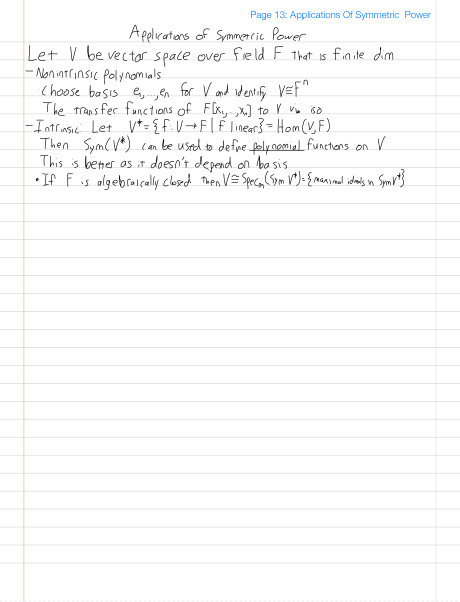 Page 13: Applications Of Symmetric Power
Applications of Symmetric Power
Let V be vector space over field F that is finite dim
- Nonintrinsic polynomials
Choose basis e₁,...,eₙ for V and identify V≅Fⁿ
The transfer functions of F[x₁,...,xₙ] to V via iso
- Intrinsic: Let V* = {f: V→F | f linear} = Hom(V,F)
Then Sym(V*) can be used to define polynomial functions on V
This is better as it doesn't depend on basis
• If F is algebraically closed then V≅Specₘ(Sym V*) = {maximal ideals in Sym V*}